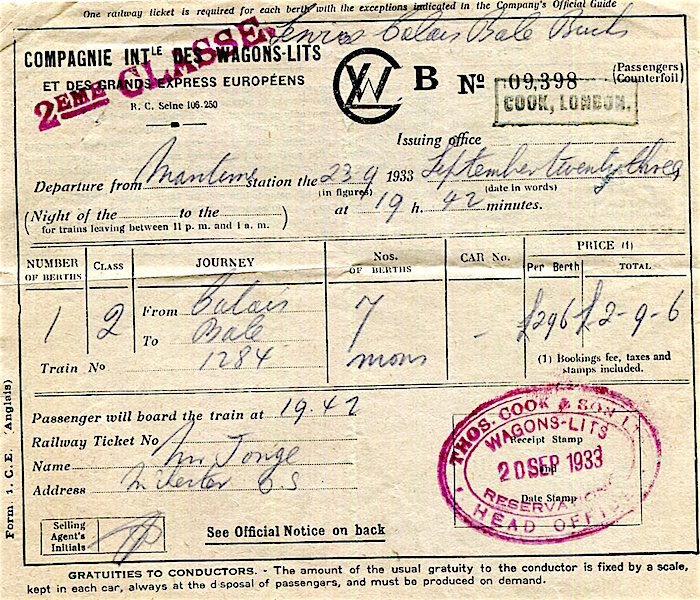 One railway ticket is required for each berth with the exceptions indicated in the Company's Official Guide
Calais Bale
COMPAGNIE INTLE DES WAGONS-LITS
ET DES GRANDS EXPRESS EUROPÉENS
R. C. Seine 106.250
2EME CLASSE.
WL
B No 09,398 (Passengers Counterfoil)
COOK, LONDON.
Issuing office
Departure from Maritime station the 23 9 1933 September twenty three
(in figures) (date in words)
(Night of the to the )
for trains leaving between 11 p. m. and 1 a. m.
at 19 h. 42 minutes.
NUMBER OF BERTHS CLASS JOURNEY Nos. OF BERTHS CAR No. PRICE (1)
Per Berth TOTAL
1 2 From Calais 7 - £296 £2-9-6
To Bale
Train No 1284
(1) Bookings fee, taxes and stamps included.
Passenger will board the train at 19.42
Railway Ticket No
Name Mr Tonge
Address
Receipt Stamp
and
Date Stamp
THOS. COOK & SON
WAGONS-LITS
20 SEP 1933
HEAD OFFICE
Selling Agent's Initials
See Official Notice on back
Form. 1. C. E. (Anglais)
GRATUITIES TO CONDUCTORS. - The amount of the usual gratuity to the conductor is fixed by a scale,
kept in each car, always at the disposal of passengers, and must be produced on demand.